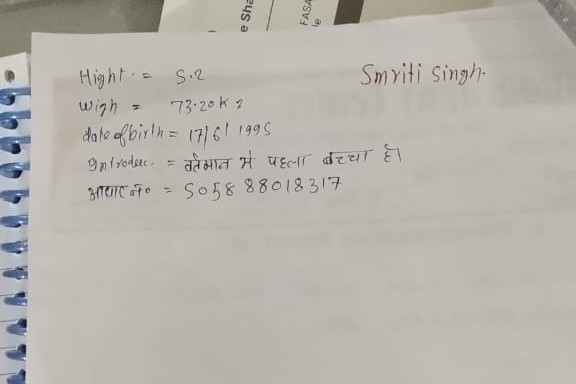 e Sha
FASA
le
Smriti Singh.
Hight. = 5.2
wigh = 73.20 K g
date of birth = 17/6/1995
Introduc. = वर्तमान मे पहला बच्चा है।
आधार नं० = 5058 88018317